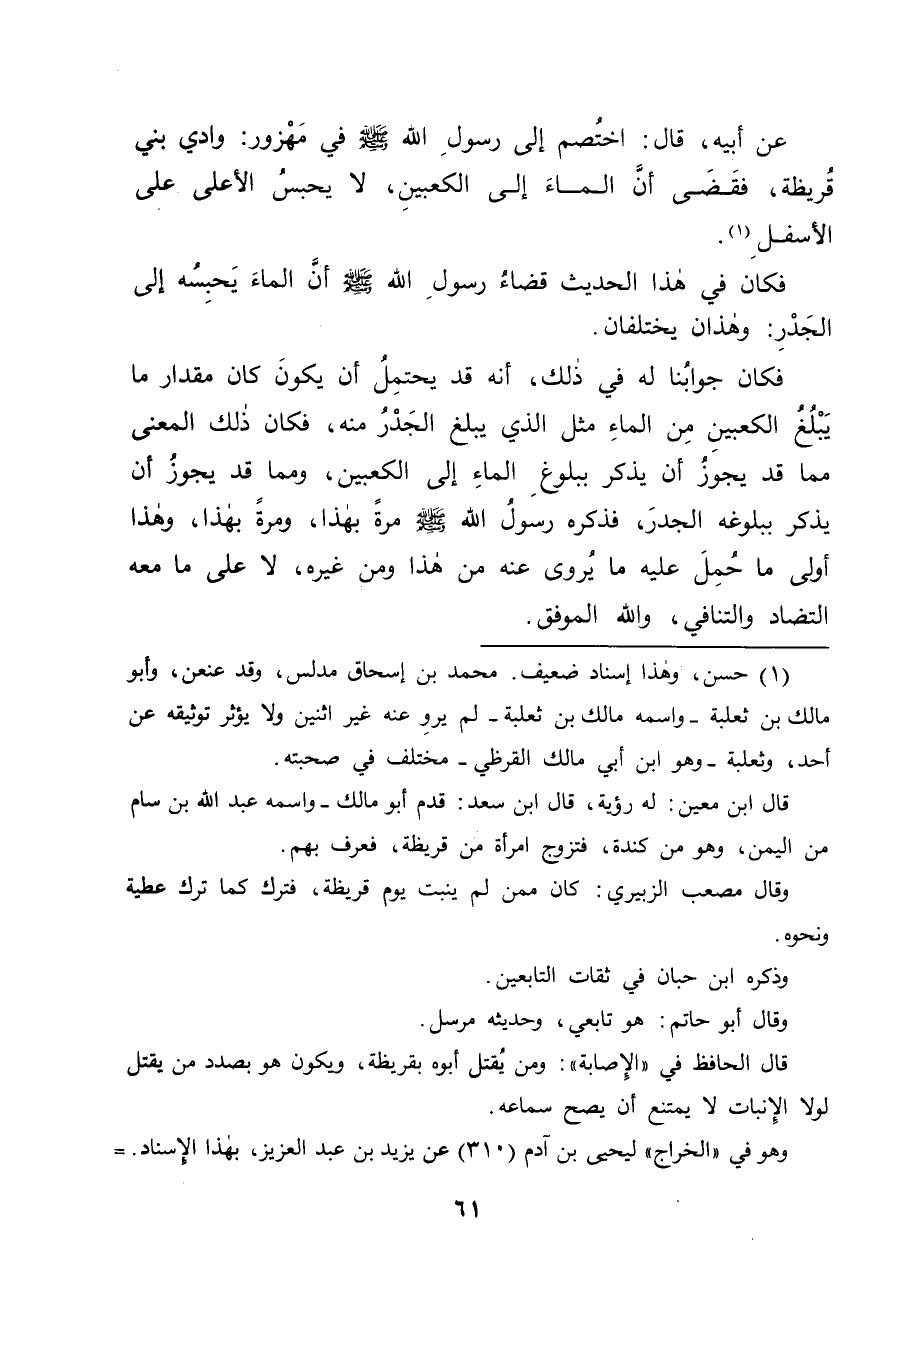 عن أبيه، قال: اختُصم إلى رسولِ الله ﷺ في مَهْزور: وادي بني
قُريظة، فقَضَى أنَّ الماءَ إلى الكعبينِ، لا يحبسُ الأعلى على
الأسفلِ (١).
فكان في هٰذا الحديث قضاءُ رسولِ الله ﷺ أنَّ الماءَ يَحبِسُه إلى
الجَدْرِ: وهٰذان يختلفان.
فكان جوابُنا له في ذٰلك، أنه قد يحتملُ أن يكونَ كان مقدار ما
يَبْلُغُ الكعبينِ مِن الماءِ مثل الذي يبلغ الجَدْرُ منه، فكان ذٰلك المعنى
مما قد يجوزُ أن يذكر ببلوغِ الماءِ إلى الكعبين، ومما قد يجوزُ أن
يذكر ببلوغه الجدرَ، فذكره رسولُ الله ﷺ مرةً بهٰذا، ومرةً بهٰذا، وهٰذا
أولى ما حُمِلَ عليه ما يُروى عنه من هٰذا ومن غيره، لا على ما معه
التضاد والتنافي، والله الموفق.
(١) حسن، وهٰذا إسناد ضعيف. محمد بن إسحاق مدلس، وقد عنعن، وأبو
مالك بن ثعلبة ـ واسمه مالك بن ثعلبة ـ لم يروِ عنه غير اثنين ولا يؤثر توثيقه عن
أحد، وثعلبة ـ وهو ابن أبي مالك القرظي ـ مختلف في صحبته.
قال ابن معين: له رؤية، قال ابن سعد: قدم أبو مالك ـ واسمه عبد الله بن سام
من اليمن، وهو من كندة، فتزوج امرأة من قريظة، فعرف بهم.
وقال مصعب الزبيري: كان ممن لم ينبت يوم قريظة، فترك كما ترك عطية
ونحوه.
وذكره ابن حبان في ثقات التابعين.
وقال أبو حاتم: هو تابعي، وحديثه مرسل.
قال الحافظ في «الإصابة»: ومن يُقتل أبوه بقريظة، ويكون هو بصدد من يقتل
لولا الإنبات لا يمتنع أن يصح سماعه.
وهو في «الخراج» ليحيى بن آدم (٣١٠) عن يزيد بن عبد العزيز، بهٰذا الإسناد. =
٦١